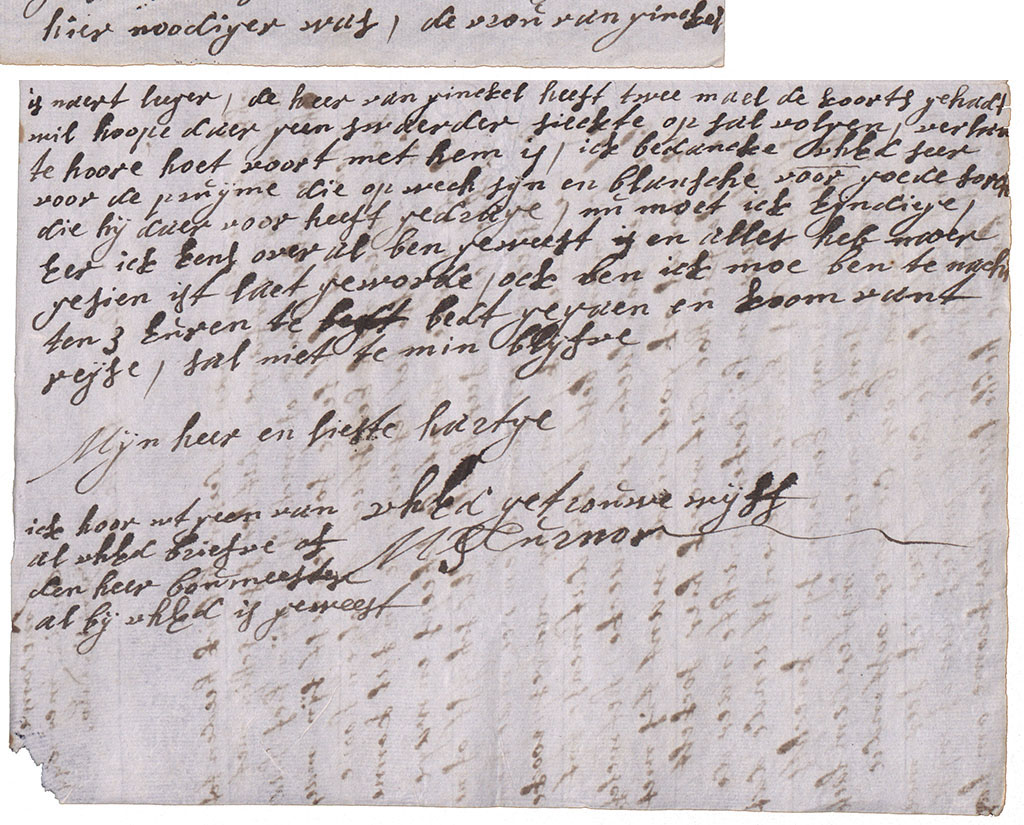 hier noodiger was, de vrou van ginckel
is naert leeger, de heer van ginckel heeft twee mael de koorts gehadt
wil hoope daer geen swaerder sieckte op sal volgen, verlan
te hoore hoet voort met hem is, ick bedancke uhEd seer
voor de pruijme die op wech sijn en blansche voor goede sorch
die hij daer voor heeft gedrage, nu moet ick eyndige,
eer ick eens over al ben geweest is en alles heb weer
gesien ist laet geworde, ock ben ick moe ben te nacht
ten 3 euren te bedt gegaen en koom vant
reijse, sal niet te min blijfve
Mijn heer en liefte hartge
uhEd getrouwe wijff
MTurnor
ick hoor nt geen van
al uhEd briefve of
den heer bouwmeester
al bij uhEd is geweest